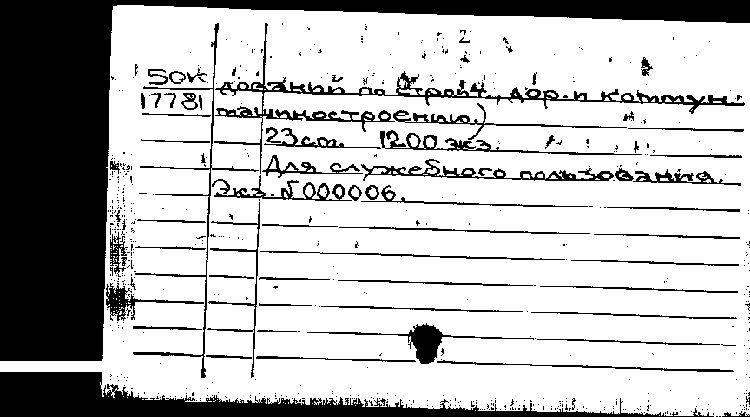 2
50к дований по строит., дор. и коммун.
17781 машиностроению.)
23 см. 1200 экз.
Для служебного пользования.
Экз. №000006.